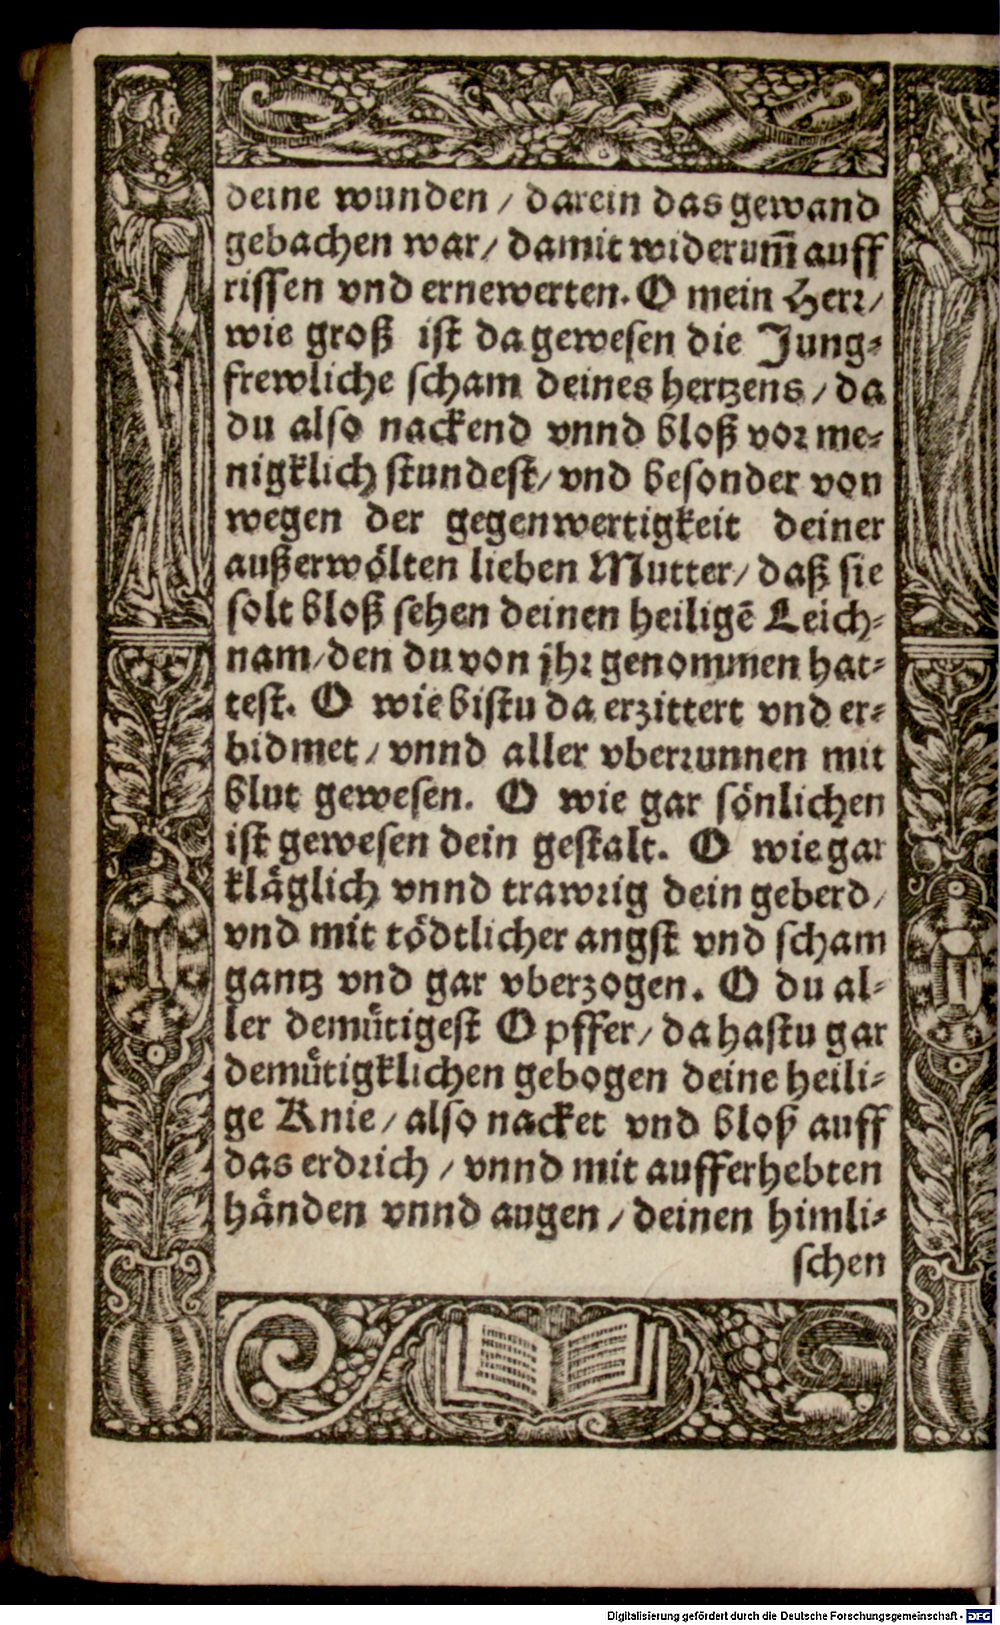 deine wunden / darein das gewand
gebachen war / damit widerum̄ auff
rissen vnd ernewerten. O mein Herr /
wie groß ist da gewesen die Jung-
frewliche scham deines hertzens / da
du also nackend vnnd bloß vor me-
nigklich stundest / vnd besonder von
wegen der gegenwertigkeit deiner
außerwoͤlten lieben Mutter / daß sie
solt bloß sehen deinen heiligē Leich-
nam / den du von jhr genommen hat-
test. O wie bistu da erzittert vnd er-
bidmet / vnnd aller vberrunnen mit
blut gewesen. O wie gar soͤnlichen
ist gewesen dein gestalt. O wie gar
klaͤglich vnnd trawrig dein geberd /
vnd mit toͤdtlicher angst vnd scham
gantz vnd gar vberzogen. O du al-
ler demuͤtigest Opffer / da hastu gar
demuͤtigklichen gebogen deine heili-
ge Knie / also nacket vnd bloß auff
das erdrich / vnnd mit aufferhebten
haͤnden vnnd augen / deinen himli-
schen
Digitalisierung gefördert durch die Deutsche Forschungsgemeinschaft - DFG